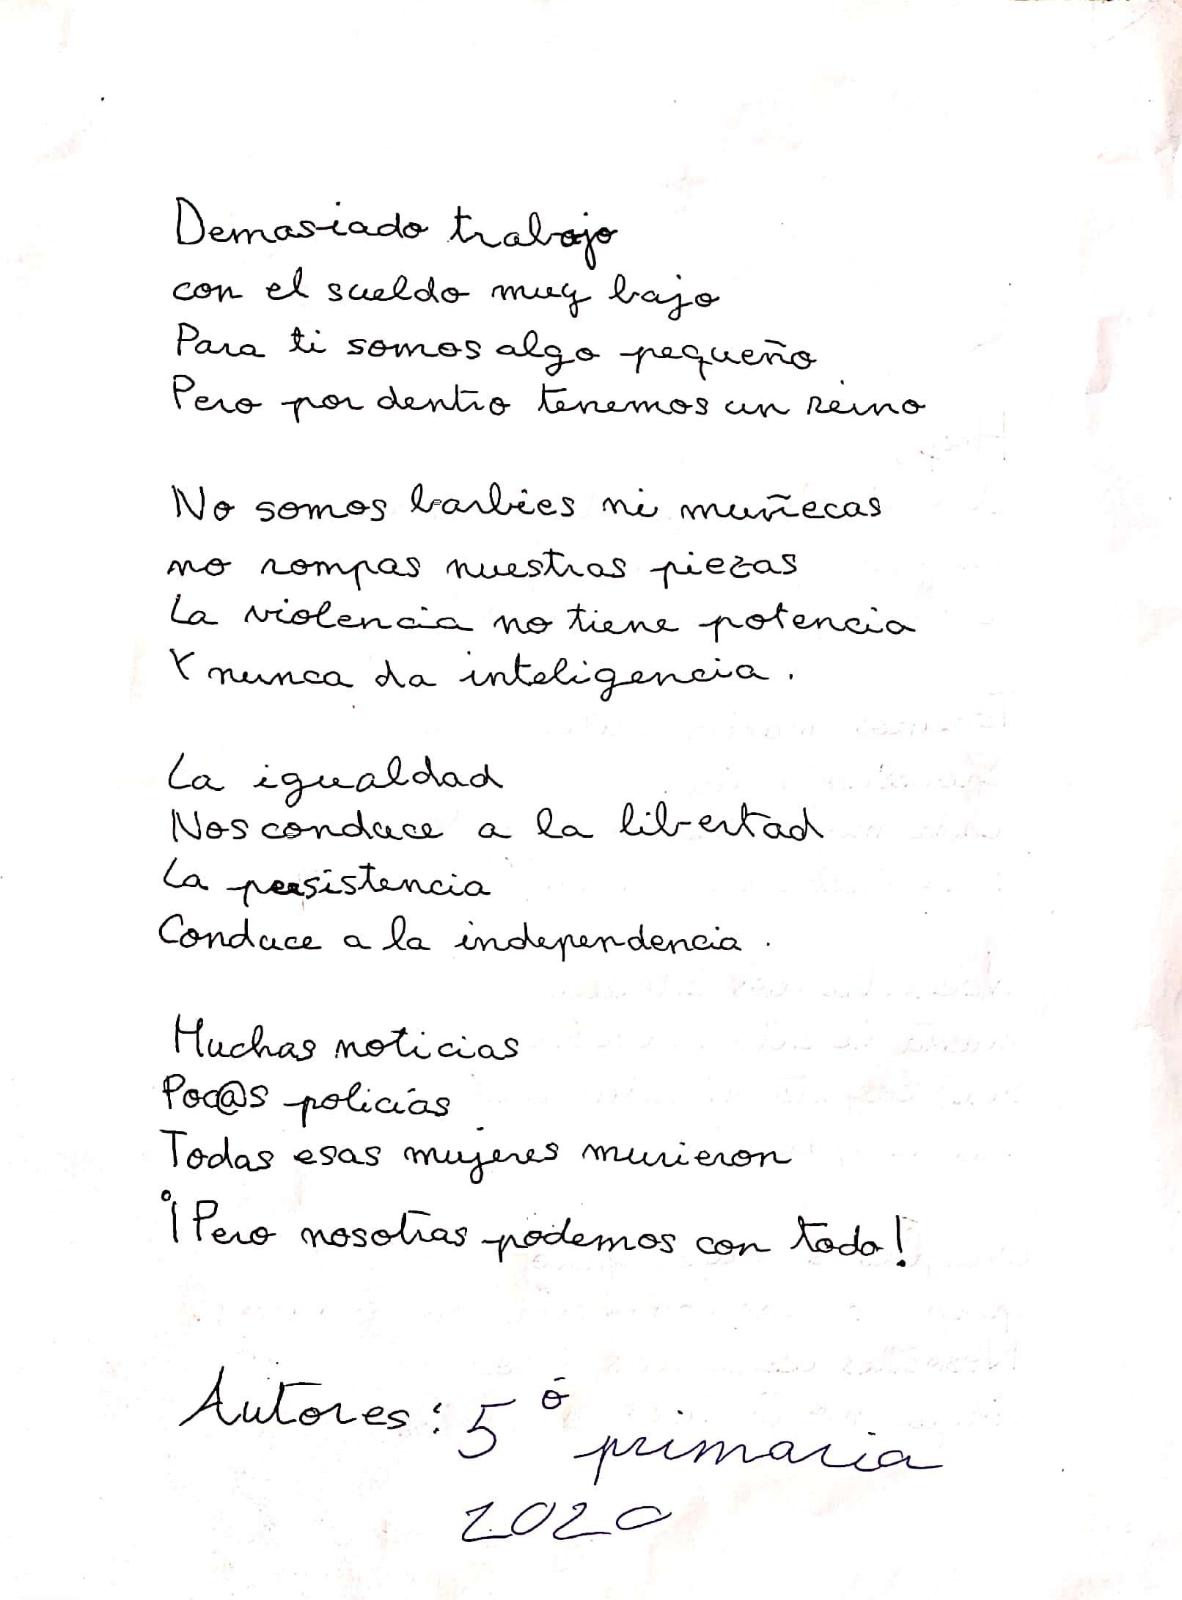 Demasiado trabajo
con el sueldo muy bajo
Para ti somos algo pequeño
Pero por dentro tenemos un reino
No somos barbies ni muñecas
no rompas nuestras piezas
La violencia no tiene potencia
Y nunca da inteligencia.
La igualdad
Nos conduce a la libertad
La persistencia
Conduce a la independencia.
Muchas noticias
Poc@s policías
Todas esas mujeres murieron
¡Pero nosotras podemos con todo!
Autores: 5º primaria
2020